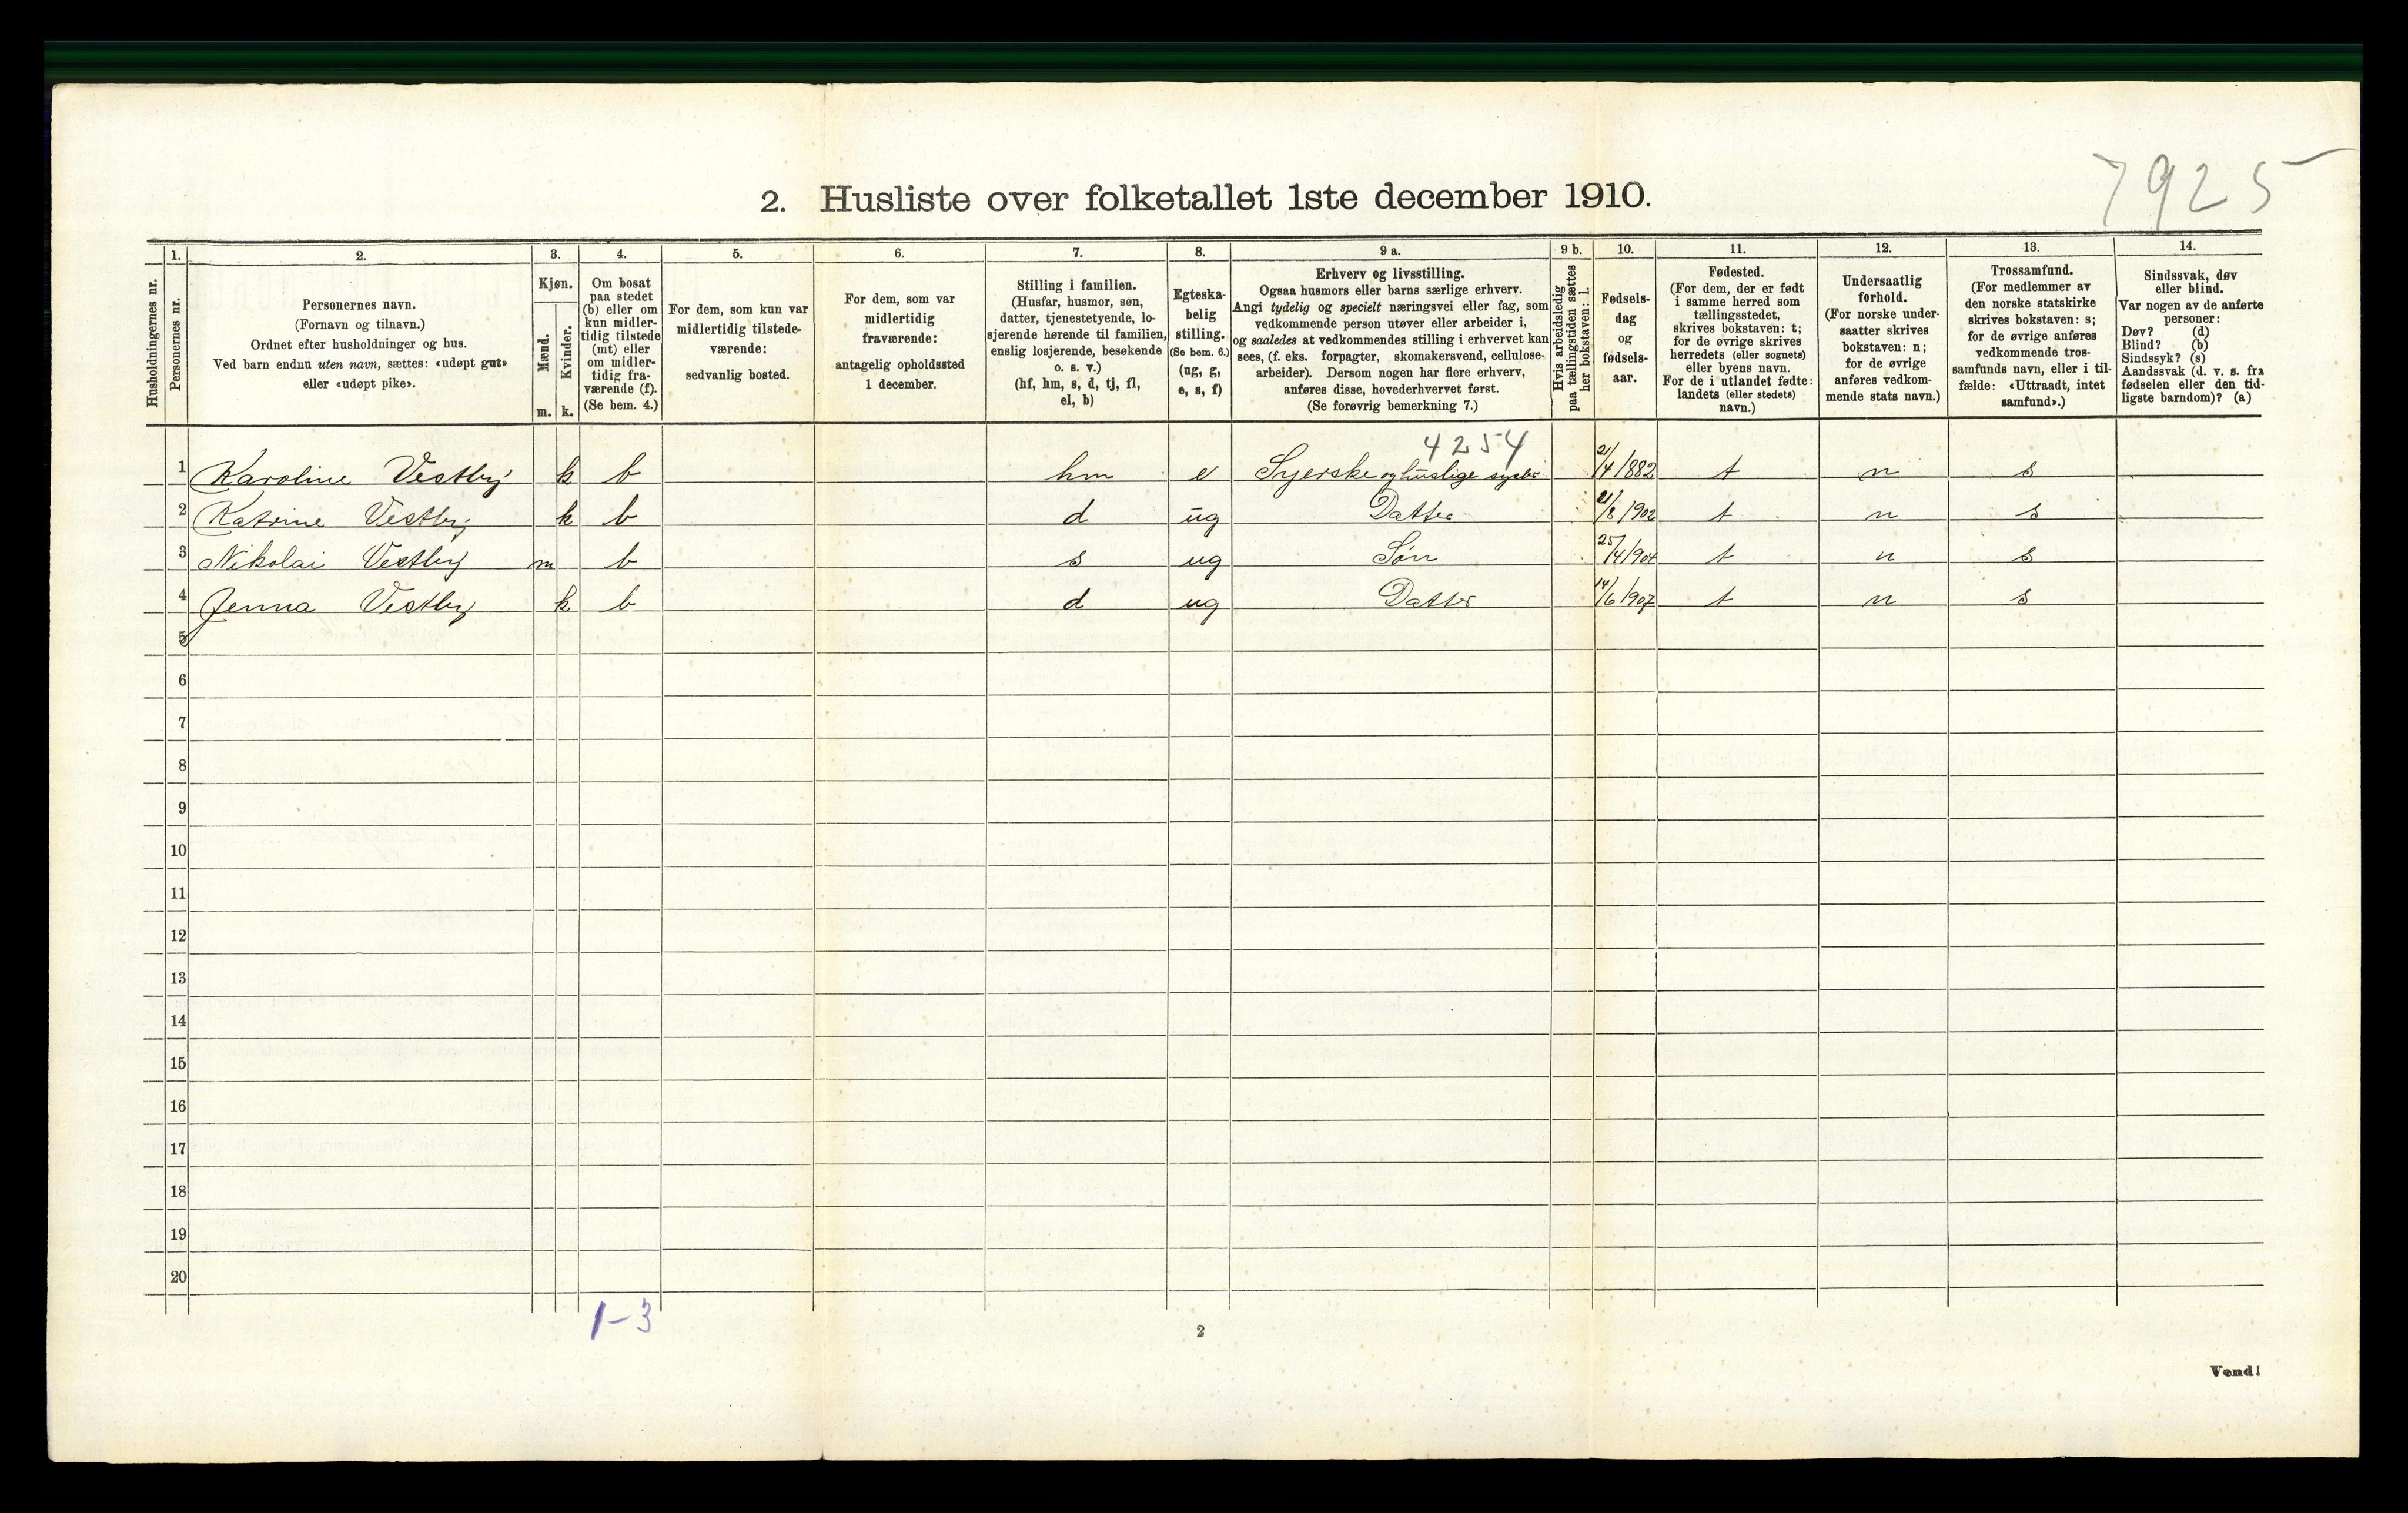 7925
2. Husliste over folketallet 1ste december 1910.
Husholdningernes nr.
1. Personernes nr.
2.
Personernes navn.
(Fornavn og tilnavn.)
Ordnet efter husholdninger og hus.
Ved barn endnu uten navn, sættes: «udøpt gut»
eller «udøpt pike».
3.
Kjøn.
Mænd. m.
Kvinder. k.
4.
Om bosat
paa stedet
(b) eller om
kun midler-
tidig tilstede
(mt) eller
om midler-
tidig fra-
værende (f).
(Se bem. 4.)
5.
For dem, som kun var
midlertidig tilstede-
værende:
sedvanlig bosted.
6.
For dem, som var
midlertidig
fraværende:
antagelig opholdssted
1 december.
7.
Stilling i familien.
(Husfar, husmor, søn,
datter, tjenestetyende, lo-
sjerende hørende til familien,
enslig losjerende, besøkende
o. s. v.)
(hf, hm, s, d, tj, fl,
el, b)
8.
Egteska-
belig
stilling.
(Se bem. 6.)
(ug, g,
e, s, f)
9 a.
Erhverv og livsstilling.
Ogsaa husmors eller barns særlige erhverv.
Angi tydelig og specielt næringsvei eller fag, som
vedkommende person utøver eller arbeider i,
og saaledes at vedkommendes stilling i erhvervet kan
sees, (f. eks. forpagter, skomakersvend, cellulose-
arbeider). Dersom nogen har flere erhverv,
anføres disse, hovederhvervet først.
(Se forøvrig bemerkning 7.)
9 b.
Hvis arbeidsledig
paa tællingstiden sættes
her bokstaven: l.
10.
Fødsels-
dag
og
fødsels-
aar.
11.
Fødested.
(For dem, der er født
i samme herred som
tællingsstedet,
skrives bokstaven: t;
for de øvrige skrives
herredets (eller sognets)
eller byens navn.
For de i utlandet fødte:
landets (eller stedets)
navn.)
12.
Undersaatlig
forhold.
(For norske under-
saatter skrives
bokstaven: n;
for de øvrige
anføres vedkom-
mende stats navn.)
13.
Trossamfund.
(For medlemmer av
den norske statskirke
skrives bokstaven: s;
for de øvrige anføres
vedkommende tros-
samfunds navn, eller i til-
fælde: «Uttraadt, intet
samfund».)
14.
Sindssvak, døv
eller blind.
Var nogen av de anførte
personer:
Døv? (d)
Blind? (b)
Sindssyk? (s)
Aandssvak (d. v. s. fra
fødselen eller den tid-
ligste barndom)? (a)
4254
1 Karoline Vestby k b hm e Syerske og huslige 21/4 1882 t n s
2 Katrine Vestby k b d ug Datter /8 1902 t n s
3 Nikolai Vestby m b s ug Søn 25/4 1904 t n s
4 Jenna Vestby k b d ug Datter 14/6 1907 t n s
5
6
7
8
9
10
11
12
13
14
15
16
17
18
19
20
1-3
2
Vend!